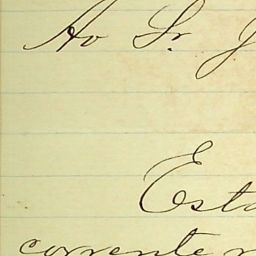 Ao Sr. J
Esta
corrente n